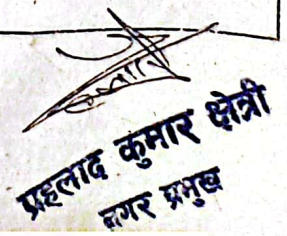 प्रहलाद कुमार क्षेत्री
नगर प्रमुख